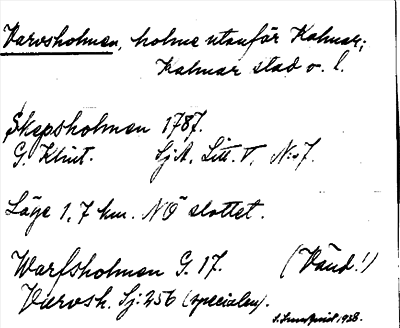 Varvsholmen, holme utanför Kalmar;
Kalmar stad o. l.
Skepsholmen 1787.
G. Klint. SjA. Litt. V, N:o 7.
Läge 1,7 km. NÖ slottet.
Warfsholmen G. 17. (Vänd!)
Varvsh. Sj: 256 (specialen).
1928.